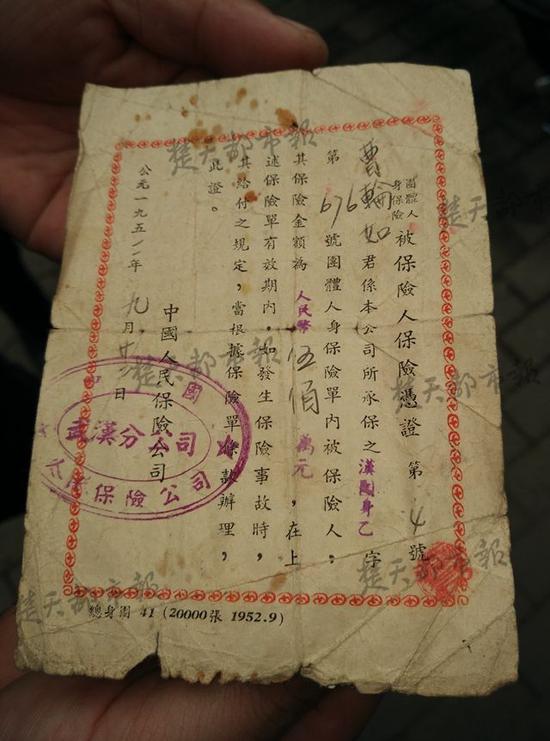 團體人身保險 被保險人保險憑證 第 4 號
曹輪如 君係本公司所承保之 漢團身乙 字
第 676 號團體人身保險單內被保險人，
其保險金額為 人民幣 伍佰 萬元，在上
述保險單有效期內，如發生保險事故時，
其給付之規定，當根據保險單條款辦理，
此證。
中國人民保險公司
公元一九五二年 九月 日
中國
武漢分公司
保險公司
總身團 41 (20000張 1952.9)
楚天都市報
楚天都市報
楚天都市報
楚天都市報
楚天都市報
楚天都市報